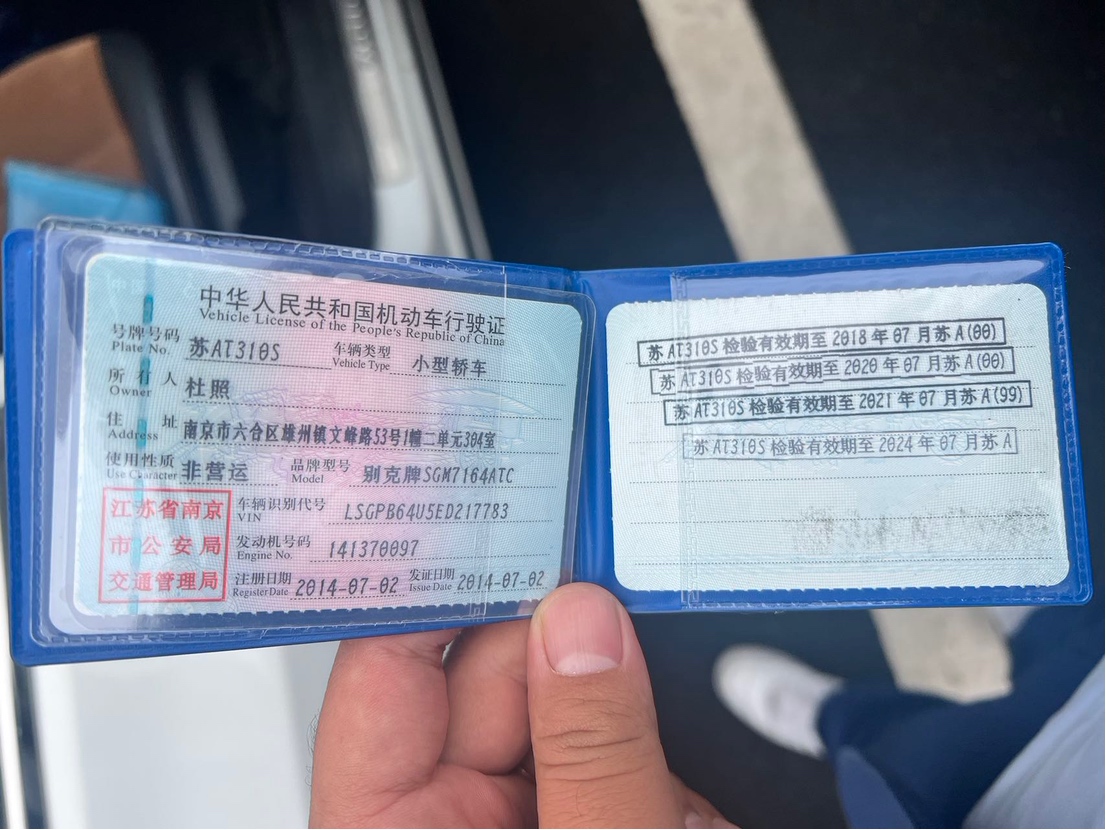 中华人民共和国机动车行驶证
Vehicle License of the People's Republic of China
号牌号码 Plate No. 苏AT310S 车辆类型 Vehicle Type 小型轿车
所有人 Owner 杜照
住址 Address 南京市六合区雄州镇文峰路53号1幢二单元304室
使用性质 Use Character 非营运 品牌型号 Model 别克牌SGM7164ATC
江苏省南京
市公安局
交通管理局
车辆识别代号 VIN LSGPB64U5ED217783
发动机号码 Engine No. 141370097
注册日期 Register Date 2014-07-02 发证日期 Issue Date 2014-07-02
苏AT310S 检验有效期至 2018 年 07 月苏 A(00)
苏AT310S 检验有效期至 2020 年 07 月苏 A(00)
苏AT310S 检验有效期至 2021 年 07 月苏 A(99)
苏AT310S 检验有效期至 2024 年 07 月苏 A